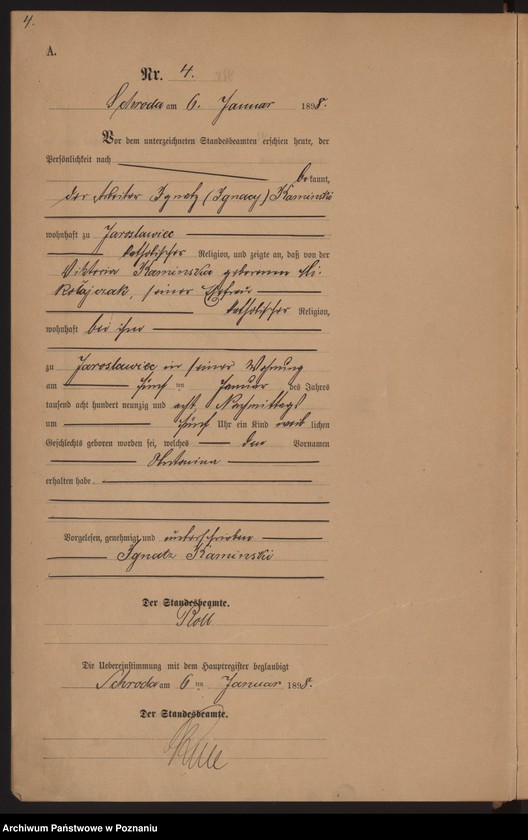 4.
A.
Nr. 4.
Schroda am 6. Januar 1898.
Vor dem unterzeichneten Standesbeamten erschien heute, der
Persönlichkeit nach
bekannt,
der Arbeiter Ignatz (Ignacy) Kaminski
wohnhaft zu Jaroslawiec
katholischer Religion, und zeigte an, daß von der
Viktoria Kaminska geborenen Mi-
kołajczak, seiner Ehefrau
katholischer Religion,
wohnhaft bei ihm
zu Jaroslawiec in seiner Wohnung
am fünften Januar des Jahres
tausend acht hundert neunzig und acht Nachmittags
um fünf Uhr ein Kind weiblichen
Geschlechts geboren worden sei, welches den Vornamen
Antonina
erhalten habe.
Vorgelesen, genehmigt und unterschrieben
Ignatz Kaminski
Der Standesbeamte.
Roll
Die Uebereinstimmung mit dem Hauptregister beglaubigt
Schroda am 6ten Januar 1898.
Der Standesbeamte.
Archiwum Państwowe w Poznaniu